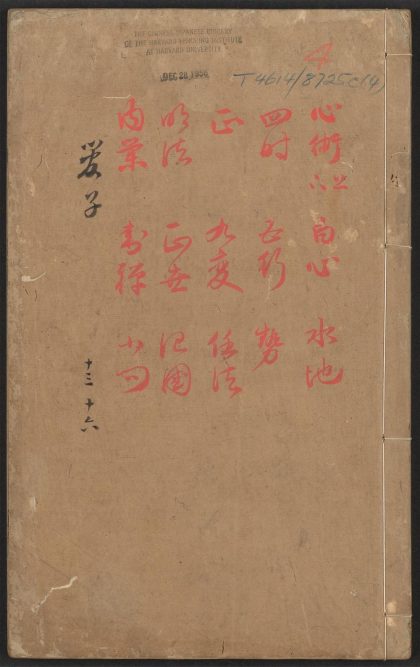 THE CHINESE-JAPANESE LIBRARY
OF THE HARVARD-YENCHING INSTITUTE
AT HARVARD UNIVERSITY
T4614/8725C(4)
4
心術上下 白心 水地
四時 五行 勢
正 九變 任法
明法 正世 治國
內業 封禪 小問
管子
十三 十六